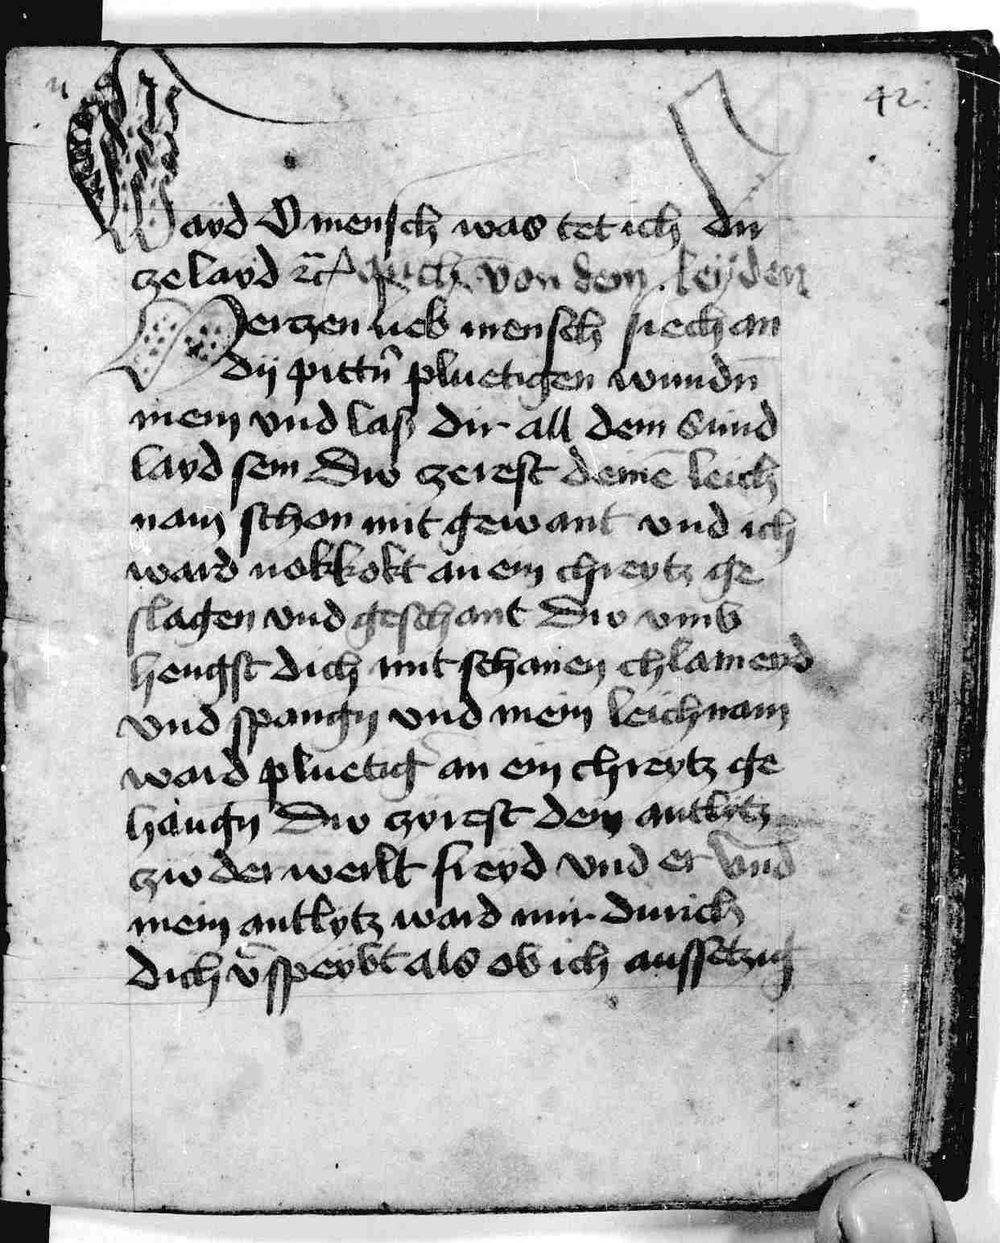 42
Wayd O mensch was tet ich dir
ze layd ꝛc̄ spruch von dem leyden
Hertzen lieb mensch siech an
dÿ pittn̄ pluetigen wundn̄
mein vnd las dir all dein Sünd
layd sein Dw zerest deinē leich
nam schon mit gewant vnd ich
ward nakkokt an ein chreytz ge
slagen vnd geschant Dw vmb
hengst dich mit schanen chlaineyd
vnd spangn̄ vnd mein leichnam
ward pluetig an ein chreytz ge
hangn̄ Dw zyrest dein antlytz
zw der werlt freyd vnd er vnd
mein antlytz ward mir durich
dich v̄speybt als ob ich aussetzig